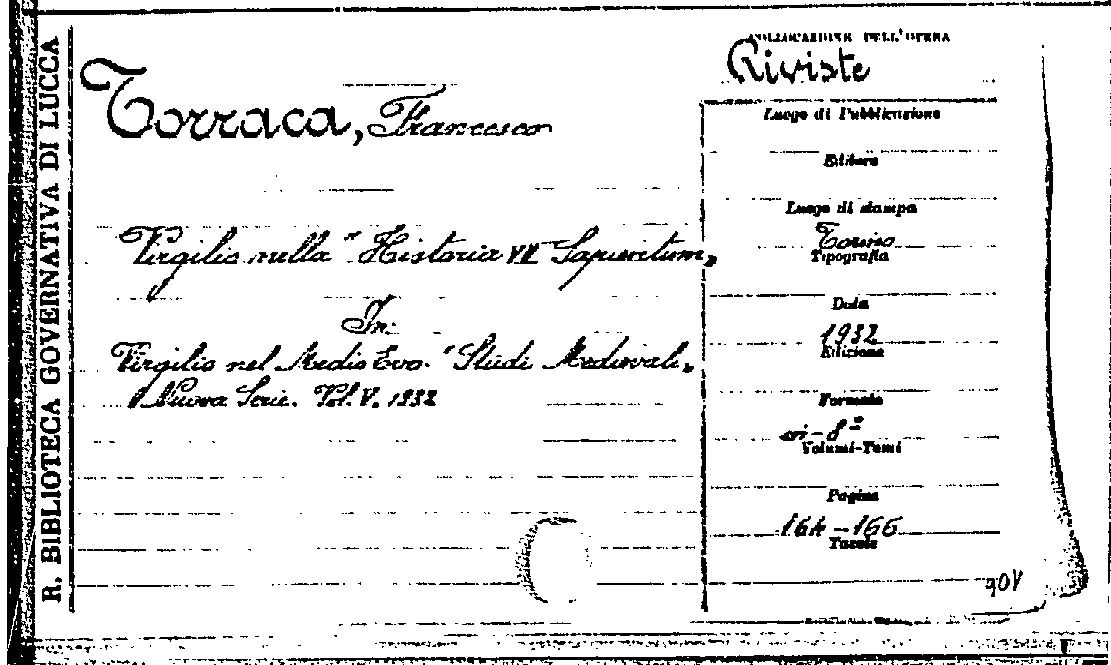 R. BIBLIOTECA GOVERNATIVA DI LUCCA
COLLOCAZIONE DELL'OPERA
Riviste
Torraca, Francesco
Luogo di Pubblicazione
Editore
Luogo di stampa
Virgilio nella "Historia VII Sapientum„
Torino
Tipografia
In:
Data
1932
Virgilio nel Medio Evo. "Studi Medievali„
Edizione
Nuova Serie. Vol. V. 1932
Formato
in-8º
Volumi-Tomi
Pagine
164-166
Tavole